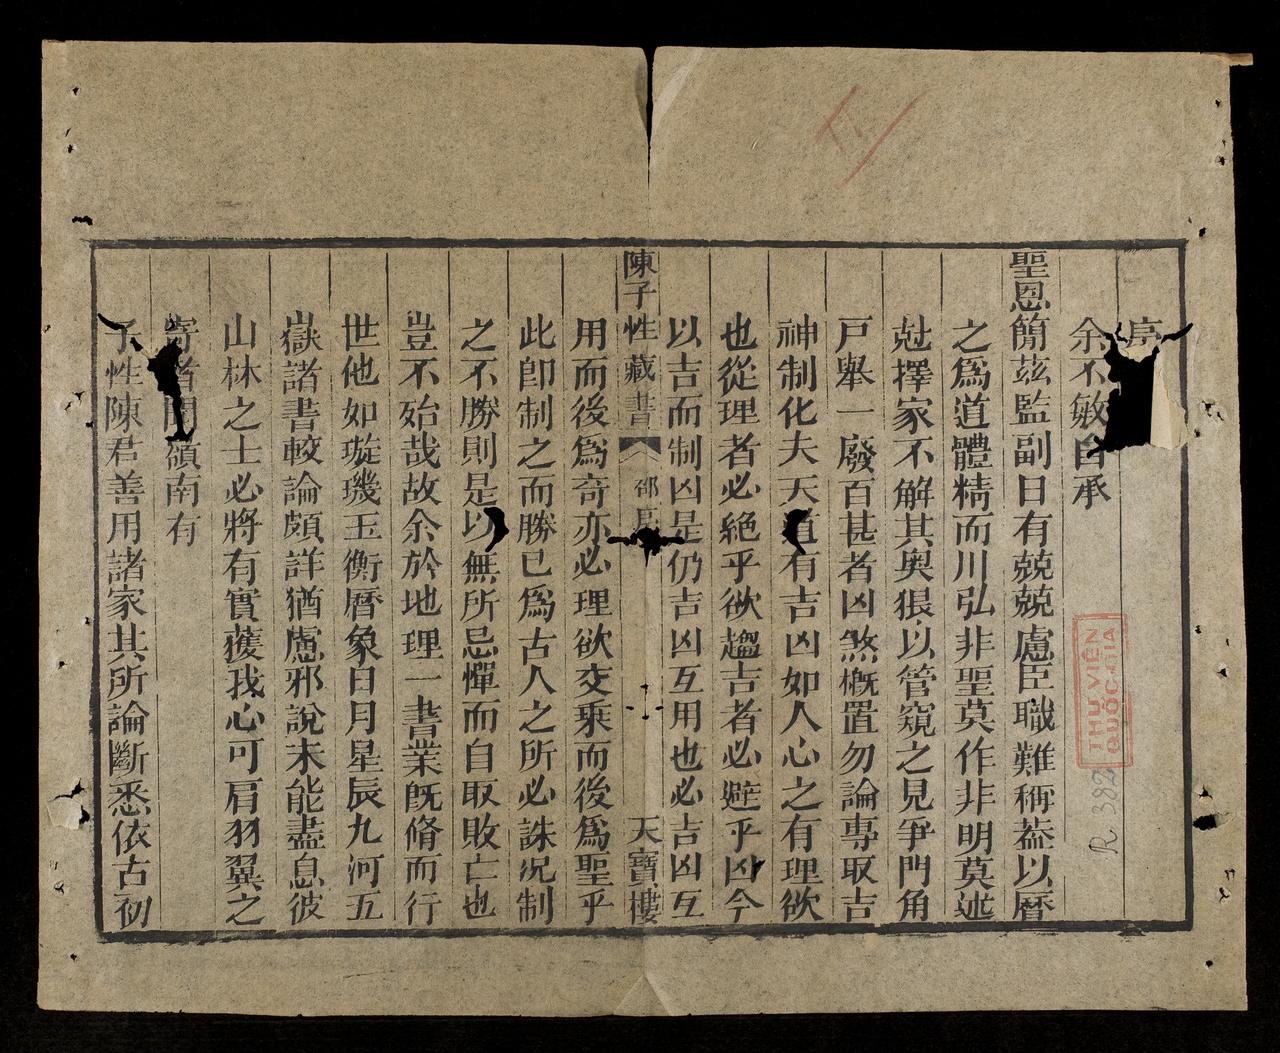 序
余不敏自承
聖恩簡茲監副日有兢兢慮臣職難稱葢以曆
之爲道體精而川弘非聖莫作非明莫述
尅擇家不解其奥狠以管窺之見爭門角
戸舉一廢百甚者凶煞槪置勿論專取吉
神制化夫天道有吉凶如人心之有理欲
也從理者必絶乎欲趨吉者必避乎凶今
以吉而制凶是仍吉凶互用也必吉凶互
陳子性藏書 邵序 天寶樓
用而後爲奇亦必理欲交乘而後爲聖乎
此卽制之而勝已爲古人之所必誅况制
之不勝則是以無所忌憚而自取敗亡也
豈不殆哉故余於地理一書業旣脩而行
世他如璇璣玉衡曆象日月星辰九河五
嶽諸書較論頗詳猶慮邪說未能盡息彼
山林之士必將有實獲我心可肩羽翼之
寄者聞嶺南有
子性陳君善用諸家其所論斷悉依古初
THƯ VIỆN
QUỐC GIA
R 382